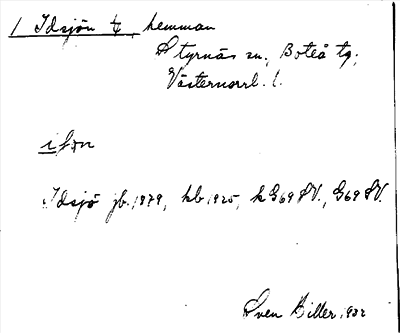 1 Idsjön ty, hemman
Styrnäs sn, Boteå tg;
Västernorrl. l.
ifɔn
Idsjö jb. 1879, kb. 1925, k G69 SV., G69 SV.
Sven Biller, 1932